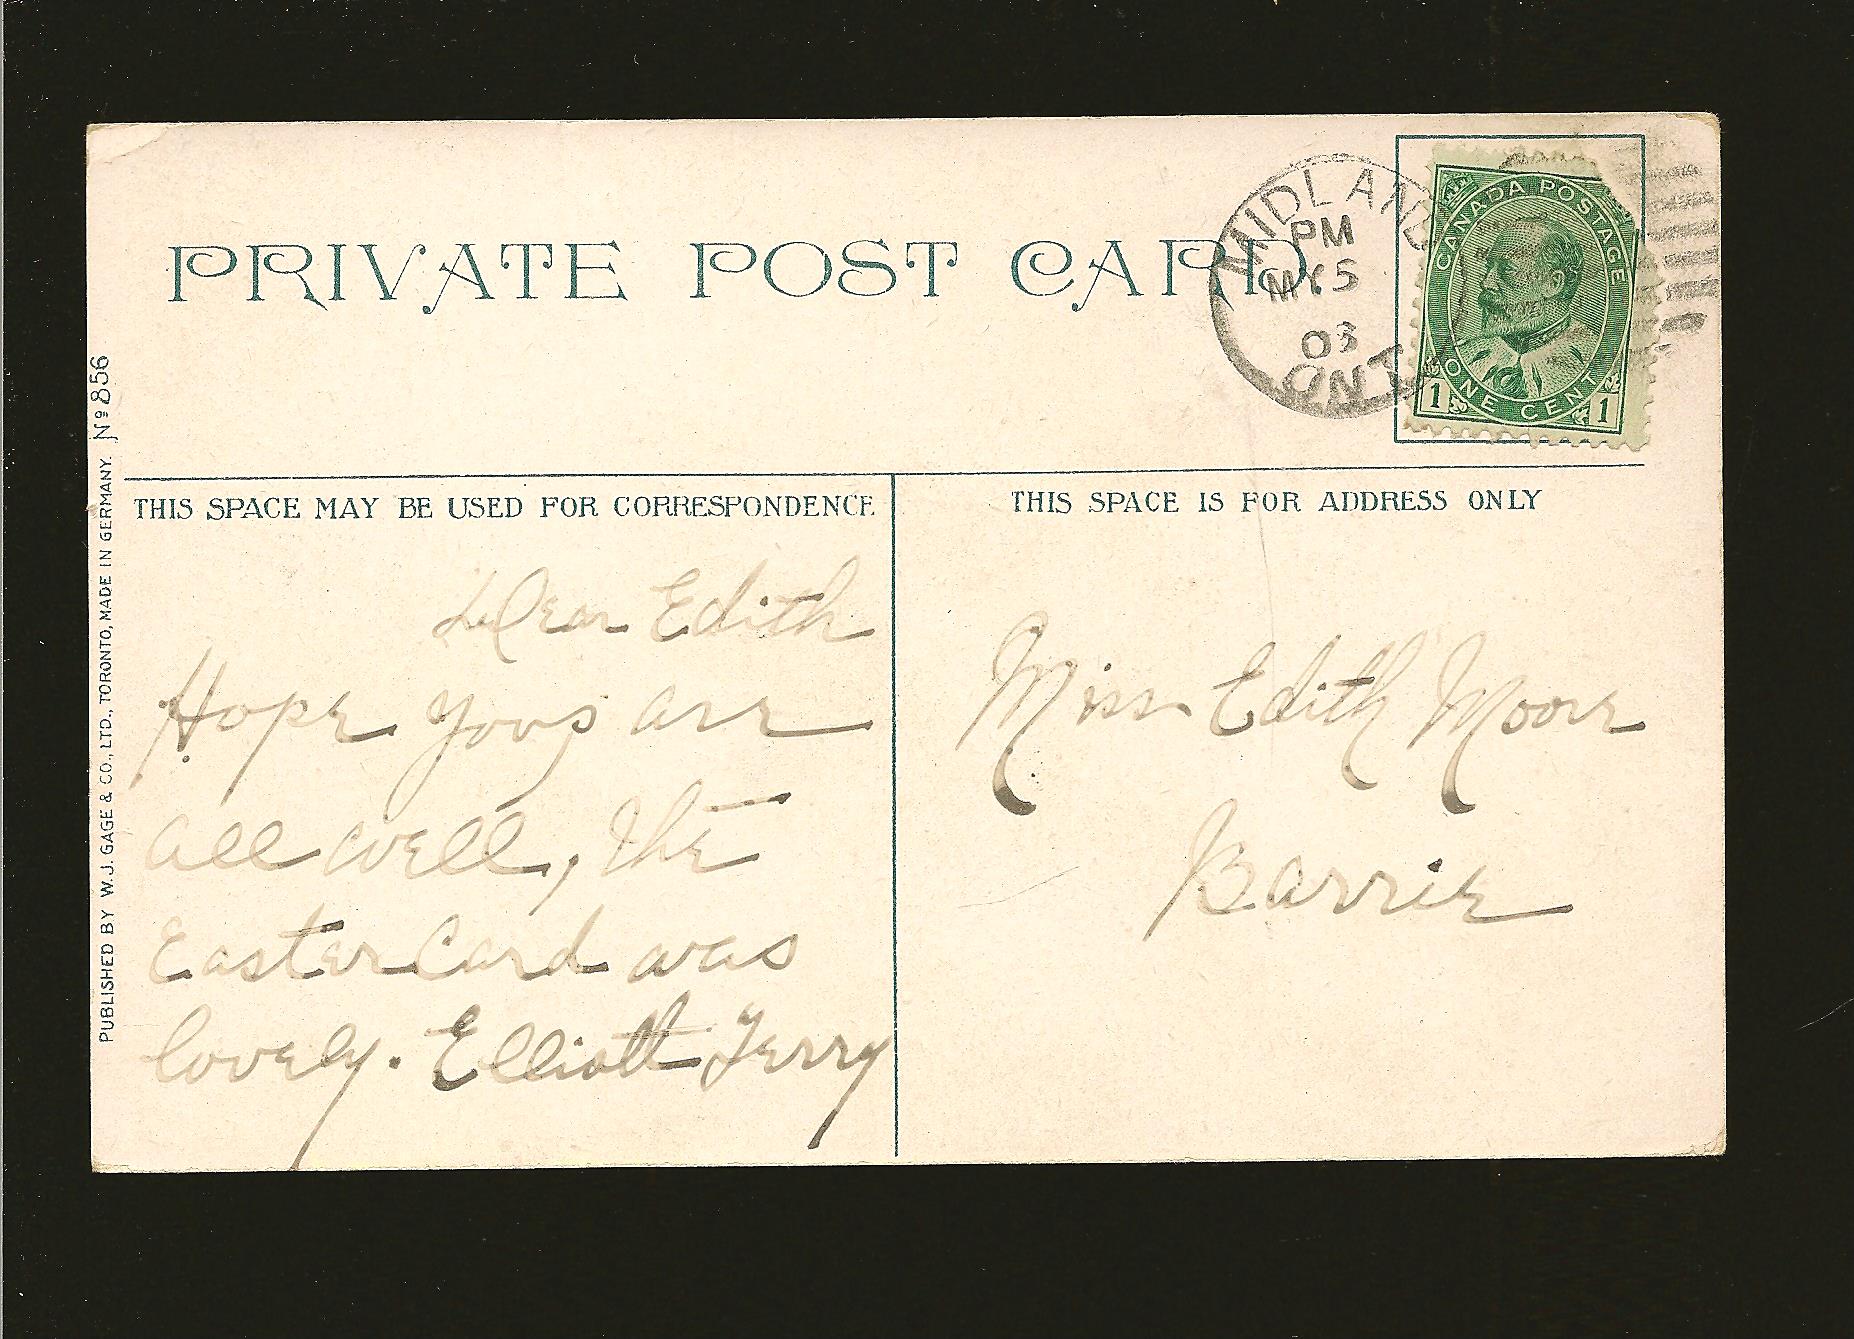 PRIVATE POST CARD
MIDLAND
PM
MY 5
03
ONT
CANADA POSTAGE
ONE CENT
1 1
THIS SPACE MAY BE USED FOR CORRESPONDENCE
Dear Edith
Hope yous are
all well, the
Easter Card was
lovely. Elliott Terry
THIS SPACE IS FOR ADDRESS ONLY
Miss Edith Moore
Barrie
PUBLISHED BY W. J. GAGE & CO., LTD., TORONTO, MADE IN GERMANY. No 856